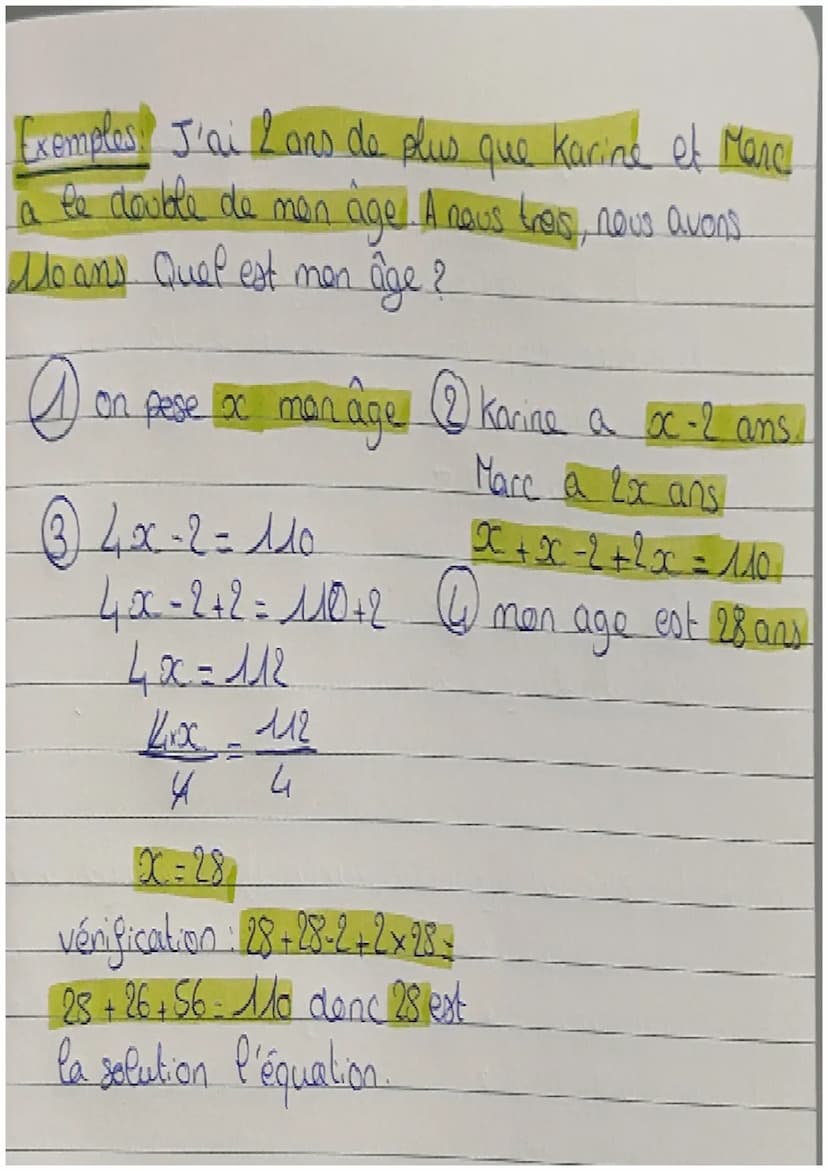 Exemples: J'ai 2 ans de plus que Karine et Marc
a le double de mon âge. A nous trois, nous avons
110 ans. Quel est mon âge ?
① on pose x mon âge
② Karine a x-2 ans.
Marc a 2x ans
x + x - 2 + 2x = 110
③ 4x - 2 = 110
4x - 2 + 2 = 110 + 2
4x = 112
4×x/4 = 112/4
x = 28
④ mon age est 28 ans
vérification : 28 + 28 - 2 + 2 × 28 =
28 + 26 + 56 = 110 donc 28 est
la solution l'équation.